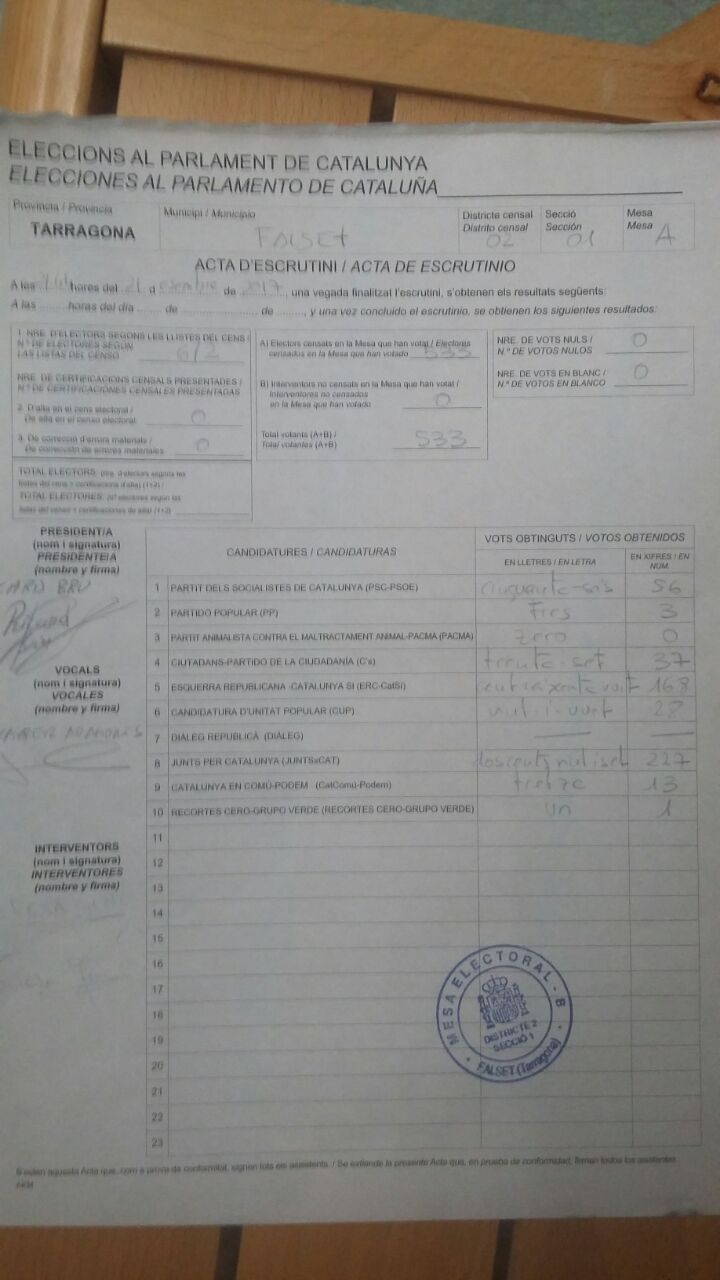 ELECCIONS AL PARLAMENT DE CATALUNYA
ELECCIONES AL PARLAMENTO DE CATALUÑA
Provincia / Provincia
TARRAGONA
Municipi / Municipio
FALSET
Districte censal
Distrito censal
02
Secció
Sección
01
Mesa
Mesa
A
ACTA D'ESCRUTINI / ACTA DE ESCRUTINIO
A les hores del 21 d de 2017, una vegada finalitzat l'escrutini, s'obtenen els resultats següents:
A las horas del día de de y una vez concluido el escrutinio, se obtienen los siguientes resultados:
1. NRE. D'ELECTORS SEGONS LES LLISTES DEL CENS /
N.º DE ELECTORES SEGÚN
LAS LISTAS DEL CENSO
NRE. DE CERTIFICACIONS CENSALS PRESENTADES /
N.º DE CERTIFICACIONES CENSALES PRESENTADAS
2. D'alta en el cens electoral /
De alta en el censo electoral 0
3. De correcció d'errors materials /
De corrección de errores materiales 0
TOTAL ELECTORS
TOTAL ELECTORES
A) Electors censats en la Mesa que han votat / Electores
censados en la Mesa que han votado 533
B) Interventors no censats en la Mesa que han votat /
Interventores no censados
en la Mesa que han votado 0
Total votants (A+B) /
Total votantes (A+B) 533
NRE. DE VOTS NULS /
N.º DE VOTOS NULOS 0
NRE. DE VOTS EN BLANC /
N.º DE VOTOS EN BLANCO 0
PRESIDENT/A
(nom i signatura)
PRESIDENTE/A
(nombre y firma)
BRU
VOCALS
(nom i signatura)
VOCALES
(nombre y firma)
INTERVENTORS
(nom i signatura)
INTERVENTORES
(nombre y firma)
CANDIDATURES / CANDIDATURAS
VOTS OBTINGUTS / VOTOS OBTENIDOS
EN LLETRES / EN LETRA
EN XIFRES / EN NÚM.
1 PARTIT DELS SOCIALISTES DE CATALUNYA (PSC-PSOE) cinquanta-sis 56
2 PARTIDO POPULAR (PP) tres 3
3 PARTIT ANIMALISTA CONTRA EL MALTRACTAMENT ANIMAL-PACMA (PACMA) zero 0
4 CIUTADANS-PARTIDO DE LA CIUDADANÍA (C's) trenta-set 37
5 ESQUERRA REPUBLICANA -CATALUNYA SÍ (ERC-CatSí) 168
6 CANDIDATURA D'UNITAT POPULAR (CUP) vint-i-vuit 28
7 DIÀLEG REPUBLICÀ (DIÀLEG)
8 JUNTS PER CATALUNYA (JUNTSxCAT) 227
9 CATALUNYA EN COMÚ-PODEM (CatComú-Podem) tretze 13
10 RECORTES CERO-GRUPO VERDE (RECORTES CERO-GRUPO VERDE) un 1
11
12
13
14
15
16
17
18
19
20
21
22
23
MESA ELECTORAL - B
DISTRICTE 2
SECCIÓ 1
FALSET (Tarragona)
S'estén aquesta Acta que, com a prova de conformitat, signen tots els assistents. / Se extiende la presente Acta que, en prueba de conformidad, firman todos los asistentes.